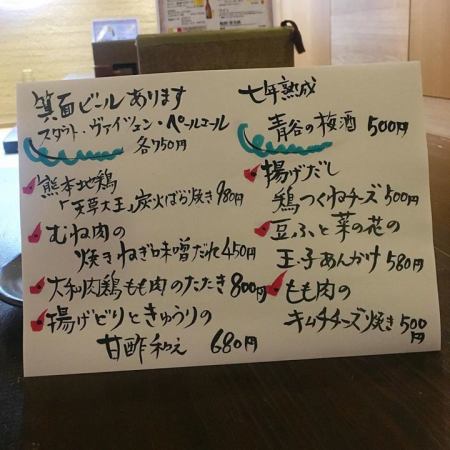 箕面ビールあります
スタウト・ヴァイツェン・ペールエール
各750円
熊本地鶏
「天草大王」炭火ばら焼き980円
むね肉の
焼きねぎ味噌だれ450円
大和肉鶏もも肉のたたき800円
揚げどりときゅうりの
甘酢和え 680円
七年熟成
青谷の梅酒 500円
揚げだし
鶏つくねチーズ500円
豆ふと菜の花の
玉子あんかけ580円
もも肉の
キムチチーズ焼き500円